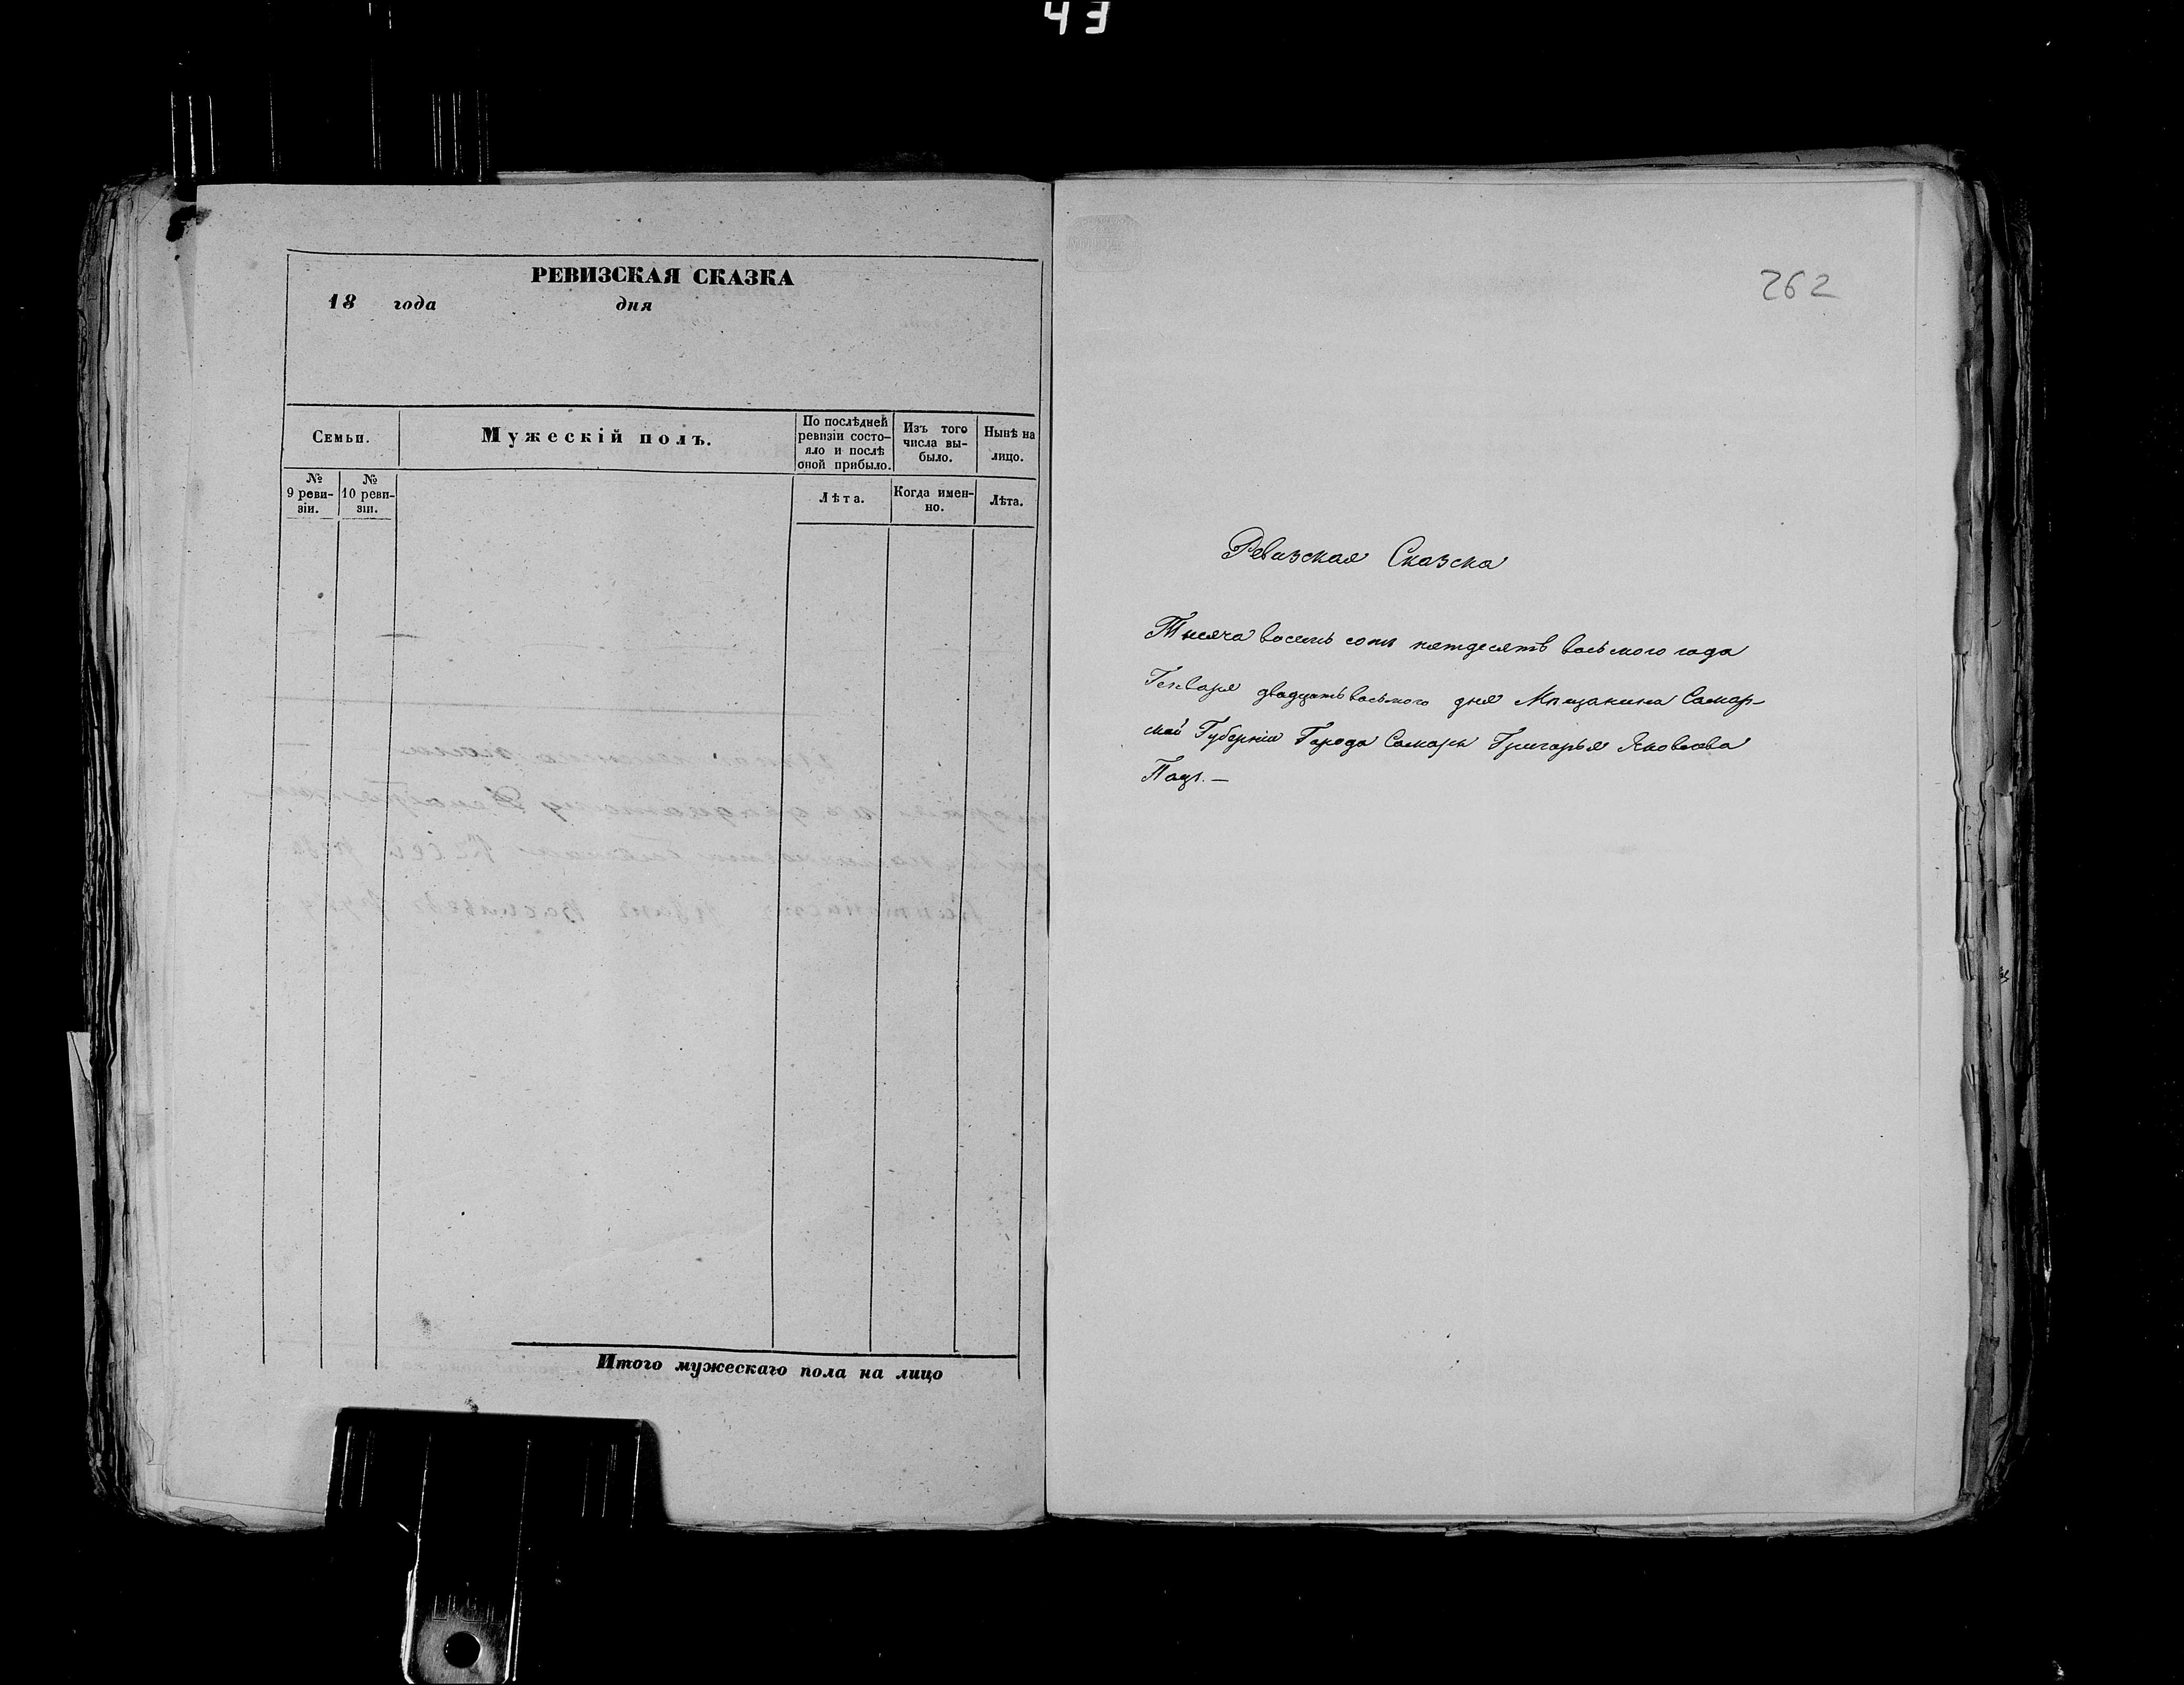 43
РЕВИЗСКАЯ СКАЗКА
18 года дня
Семьи.
Мужескій полъ.
По послѣдней ревизіи состо-
яло и послѣ оной прибыло.
Изъ того числа вы-
было.
Нынѣ на лицо.
№ 9 реви-
зіи.
№ 10 реви-
зіи.
Лѣта.
Когда имен-
но.
Лѣта.
Итого мужескаго пола на лицо
262
Ревизская Сказска
Тысяча восемь сотъ пятдесятъ восьмого года
Генваря двадцать восьмого дня Мѣщанина Самар-
ской Губерніи Города Самары Григорья Яковлева